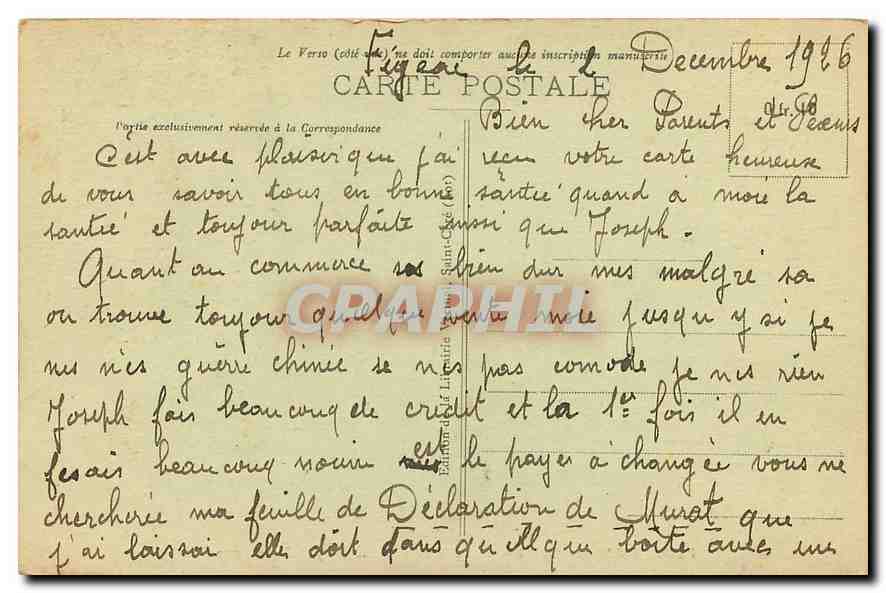 Le Verso (côté vue) ne doit comporter aucune inscription manuscrite
Figeac le 2 Decembre 1926
CARTE POSTALE
Bien cher Parents et
Partie exclusivement réservée à la Correspondance
C'est avec plaisir que j'ai reçu votre carte heureuse
de vous savoir tous en bonne santié quand a moie la
santié et toujour parfaite aussi que Joseph.
Quant au commerce bien dur mes malgré sa
on trouve toujour quellque vente moie jusqu y si je
nes n'es guère chinée se nes pas comode je nes rien
Joseph fais beaucouq de crédit et la 1er fois il en
fesais beaucouq moins est le payer à changée vous ne
chercherée ma feuille de Déclaration de Murat que
j'ai laissai elle doit dans quellque boîte avec
Edition de la Librairie Saint-Céré (Lot)
CPAPHIL